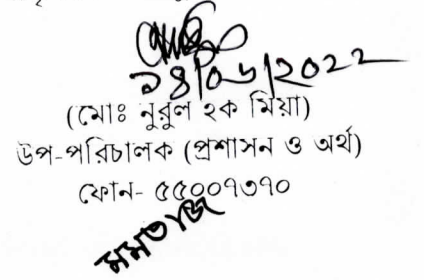 ১৪/০৬/2022
(মোঃ নুরুল হক মিয়া)
উপ-পরিচালক (প্রশাসন ও অর্থ)
ফোন- ৫৫০০৭৩৭০
মমতাজ